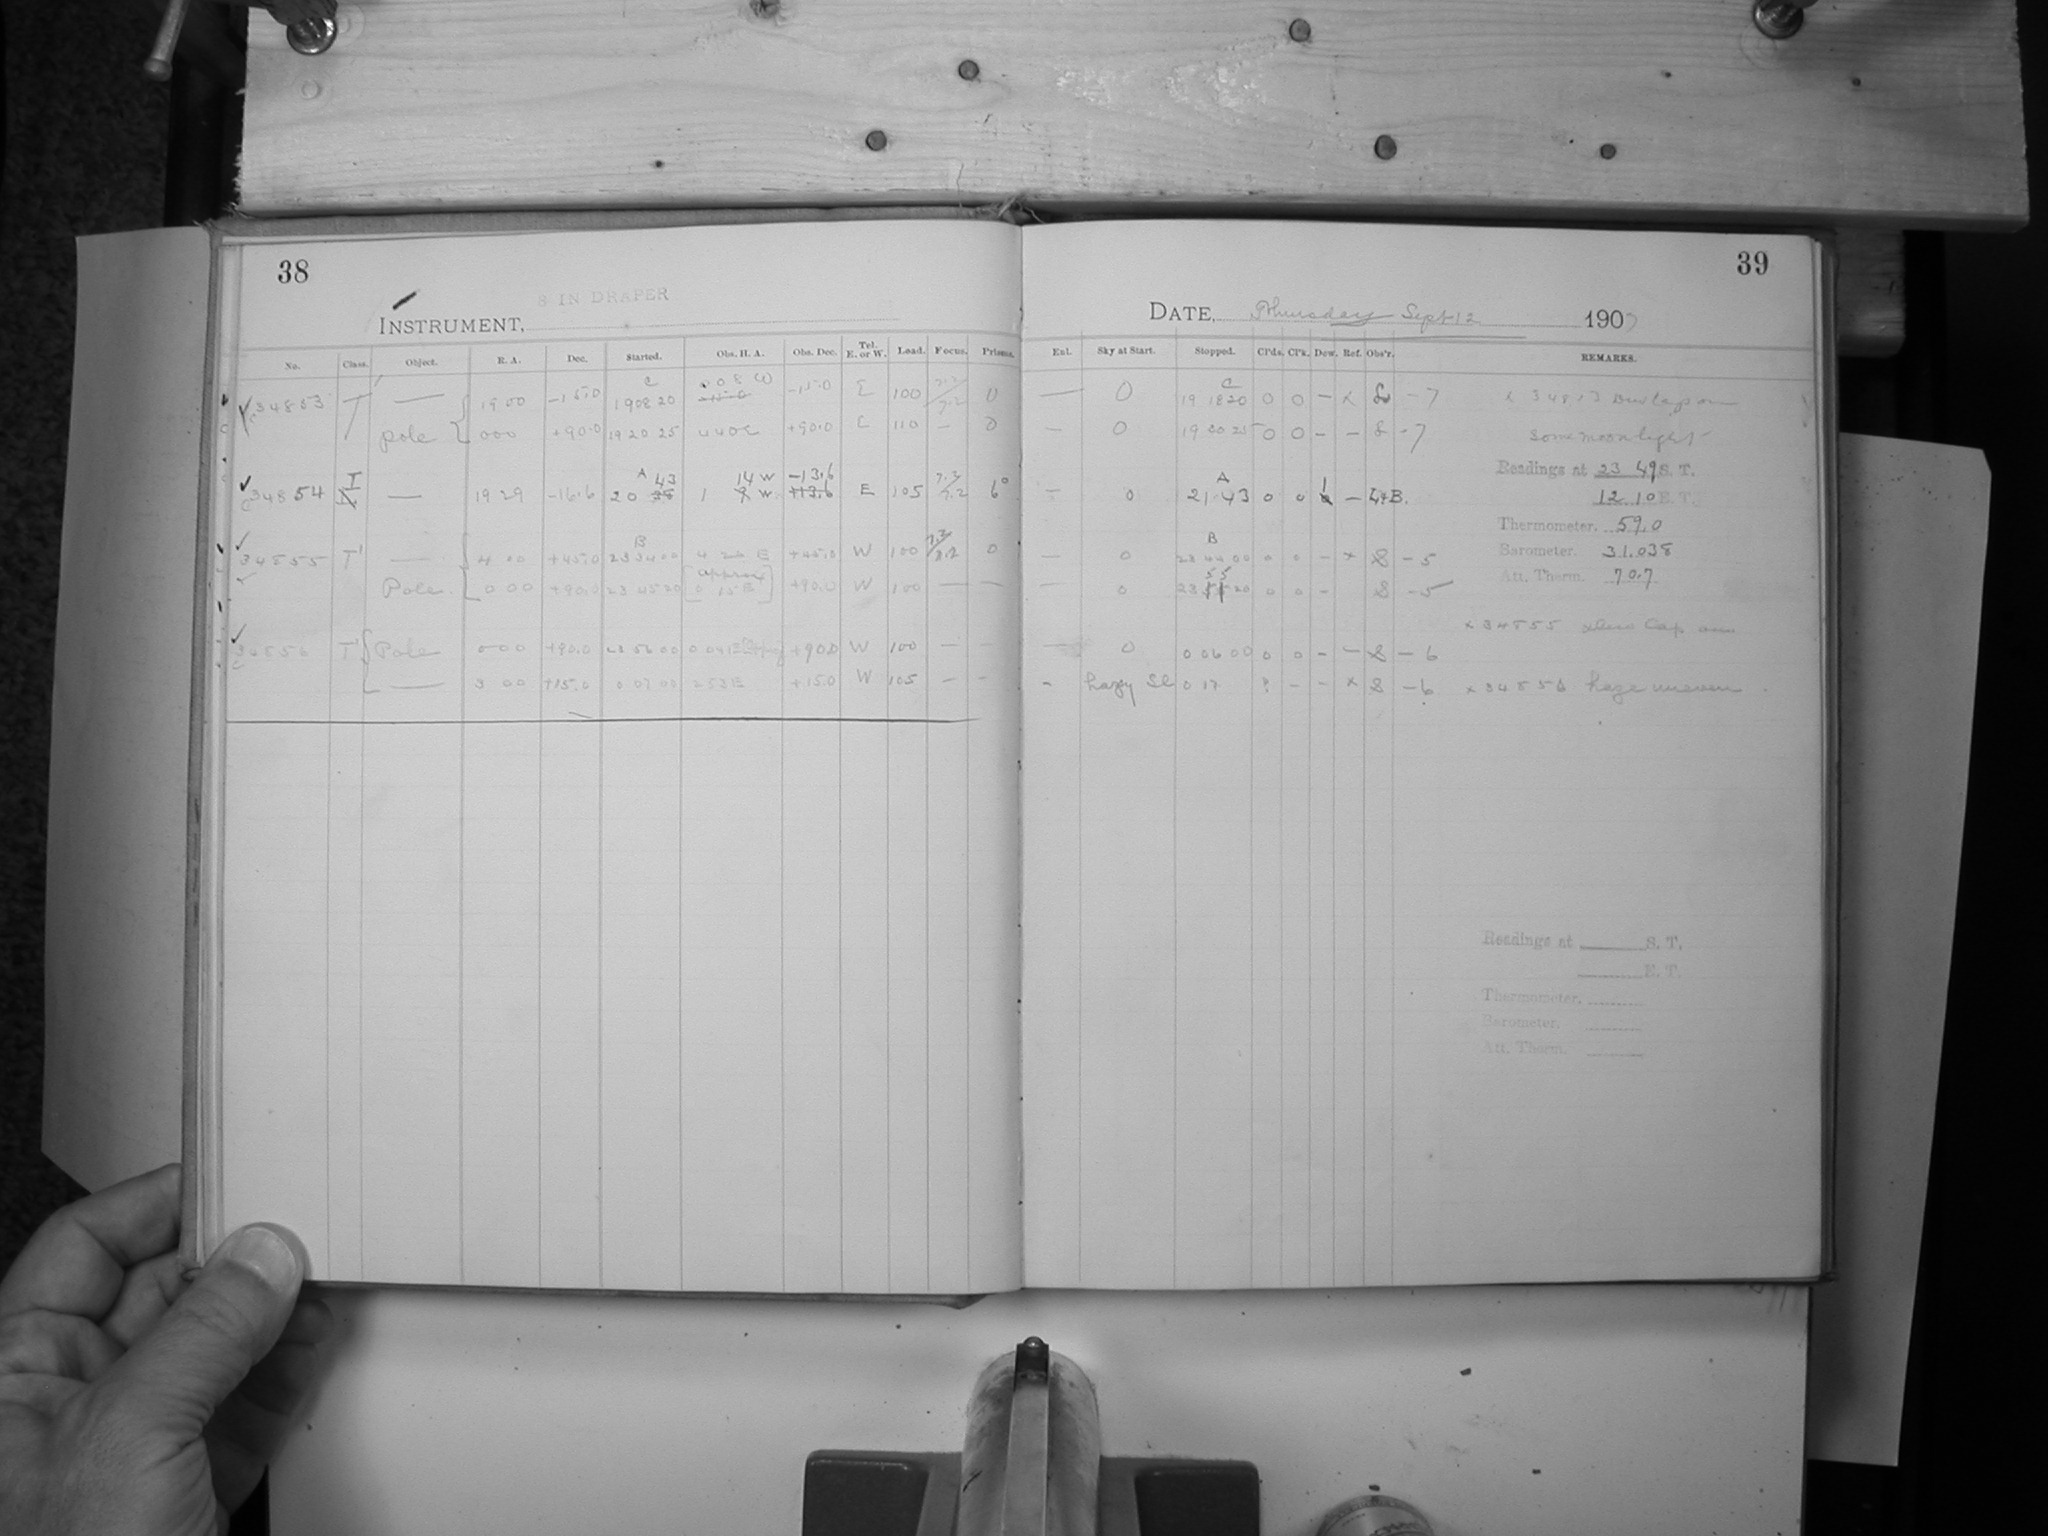 38
8 IN DRAPER
INSTRUMENT,
No. Class. Object. R. A. Dec. Started. Obs. H. A. Obs. Dec. Tel. E. or W. Load. Focus. Prisms.
C
34853 — 19 00 -15.0 19 08 20 0 08 W -15.0 E 100 0
Pole 0 00 +90.0 19 20 25 +90.0 E 110 — 0
A 43 14 W -13.6 7.3
34854 I — 19 29 -16.6 20 38 1 9 W. +13.6 E 105 7.2 6°
B
34855 T' — 4 00 +45.0 23 34 00 4 26 E +45.0 W 100 0
approx
Pole 0 00 +90.0 23 45 20 0 15 E +90.0 W 100 — —
34856 T' Pole 0 00 +90.0 23 56 00 +90.0 W 100 — —
— 3 00 +15.0 0 07 00 2 53 E +15.0 W 105 – –
39
DATE, Thursday Sept 12 1907
Enl. Sky at Start. Stopped. Cl'ds. Cl'k. Dew. Ref. Obs'r. REMARKS.
C
— 0 19 18 20 0 0 — x – 7
— 0 0 0 – – – 7 some moonlight
Readings at 23 49 S. T.
A
0 21 43 0 0 1 — B. 12 10 E. T.
Thermometer. 59.0
B
— 0 23 44 00 0 0 – x S – 5 Barometer. 31.038
55
— 0 23 20 0 0 – S – 5 Att. Therm. 70.7
x 34855 cap
— 0 0 06 00 0 0 – – S – 6
- hazy 0 17 ? – – x S – 6 x 34856 haze uneven
Readings at S. T.
E. T.
Thermometer.
Barometer.
Att. Therm.